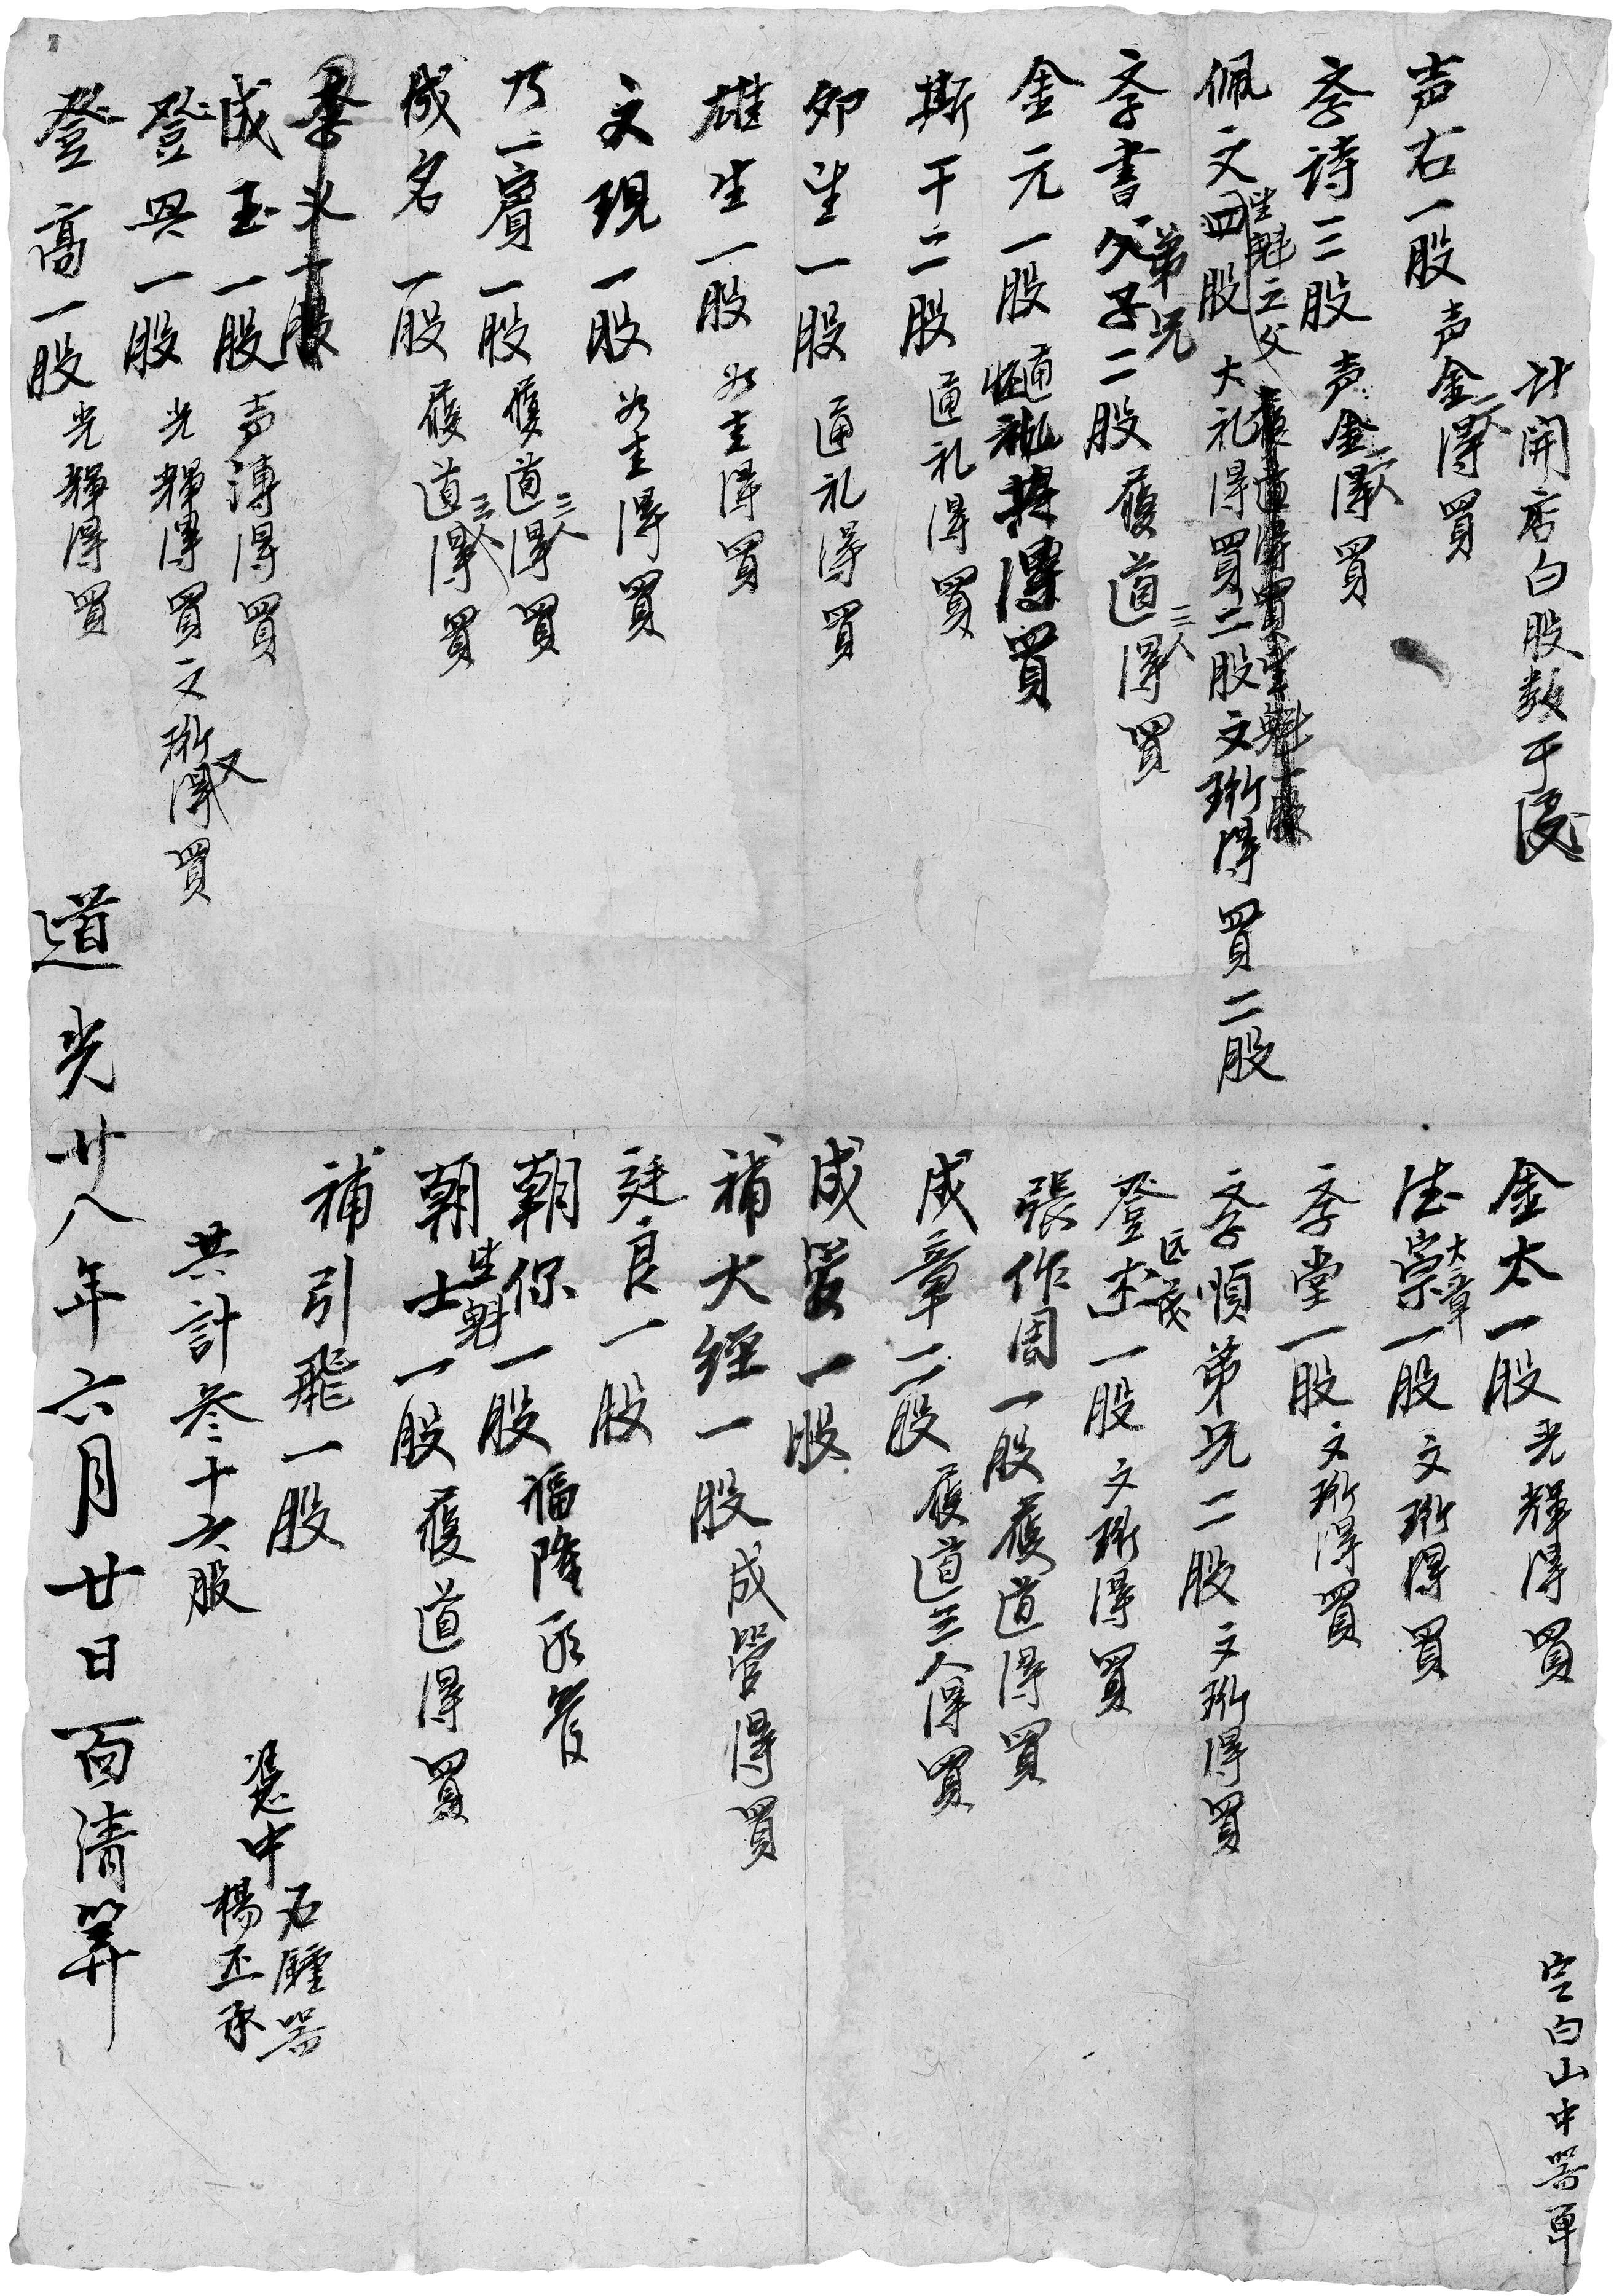 計開店白股数于後
声右一股声金二人得買
孝诗三股声金二人得買
生魁之父
佩文四股大礼得買二股文珩得買二股
孝書弟兄二股履道三人得買
金元一股通礼得買
斯干二股通礼得買
卯生一股通礼得買
雄生一股必主得買
文現一股必主得買
乃二賓一股履道三人得買
成名一股履道三人得買
成玉一股声溥得買
登興一股光輝得買文珩又得買
登高一股光輝得買
金太一股光輝得買
大章
法宗一股文珩得買
孝堂一股文珩得買
孝順弟兄二股文珩得買
远茂
登杰一股文珩得買
張作周一股履道得買
成章二股履道三人得買
成爱一股
補大經一股成管得買
廷良一股
朝保一股福隆承管
生魁
朝士一股履道得買
補引飛一股
共計叁十六股
憑中石鍾器
楊丕承
道光廿八年六月廿日百清算
空白山中器单